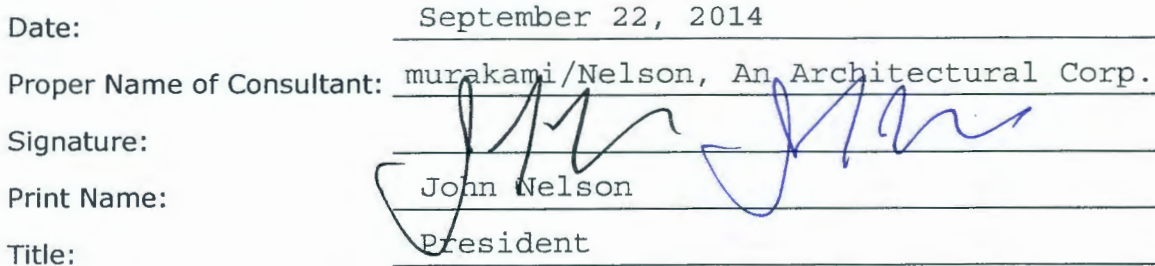 Date: September 22, 2014
Proper Name of Consultant: murakami/Nelson, An Architectural Corp.
Signature:
Print Name: John Nelson
Title: President